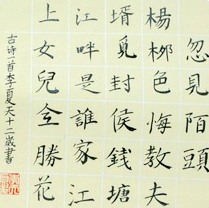 忽見陌頭
楊柳色悔教夫
壻覓封侯錢塘
江畔是誰家江
上女兒全勝花
古诗二首李夏天十二歲書